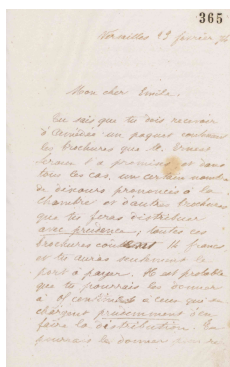 365
Versailles 19 février
Mon cher Emile.
Tu sais que tu dois recevoir
d'Amédée un paquet contenant
les brochures que M. Ernest
t'a promises, et dans
tous les cas, un certain nombre
de discours prononcés à la
chambre et d'autres brochures
que tu feras distribuer
avec prudence; toutes ces
brochures 14 francs
et tu auras seulement le
port à payer. Il est probable
que tu pourrais les donner
à ceux qui se
chargent prudemment d'en
faire la distribution. Tu
pourrais les donner